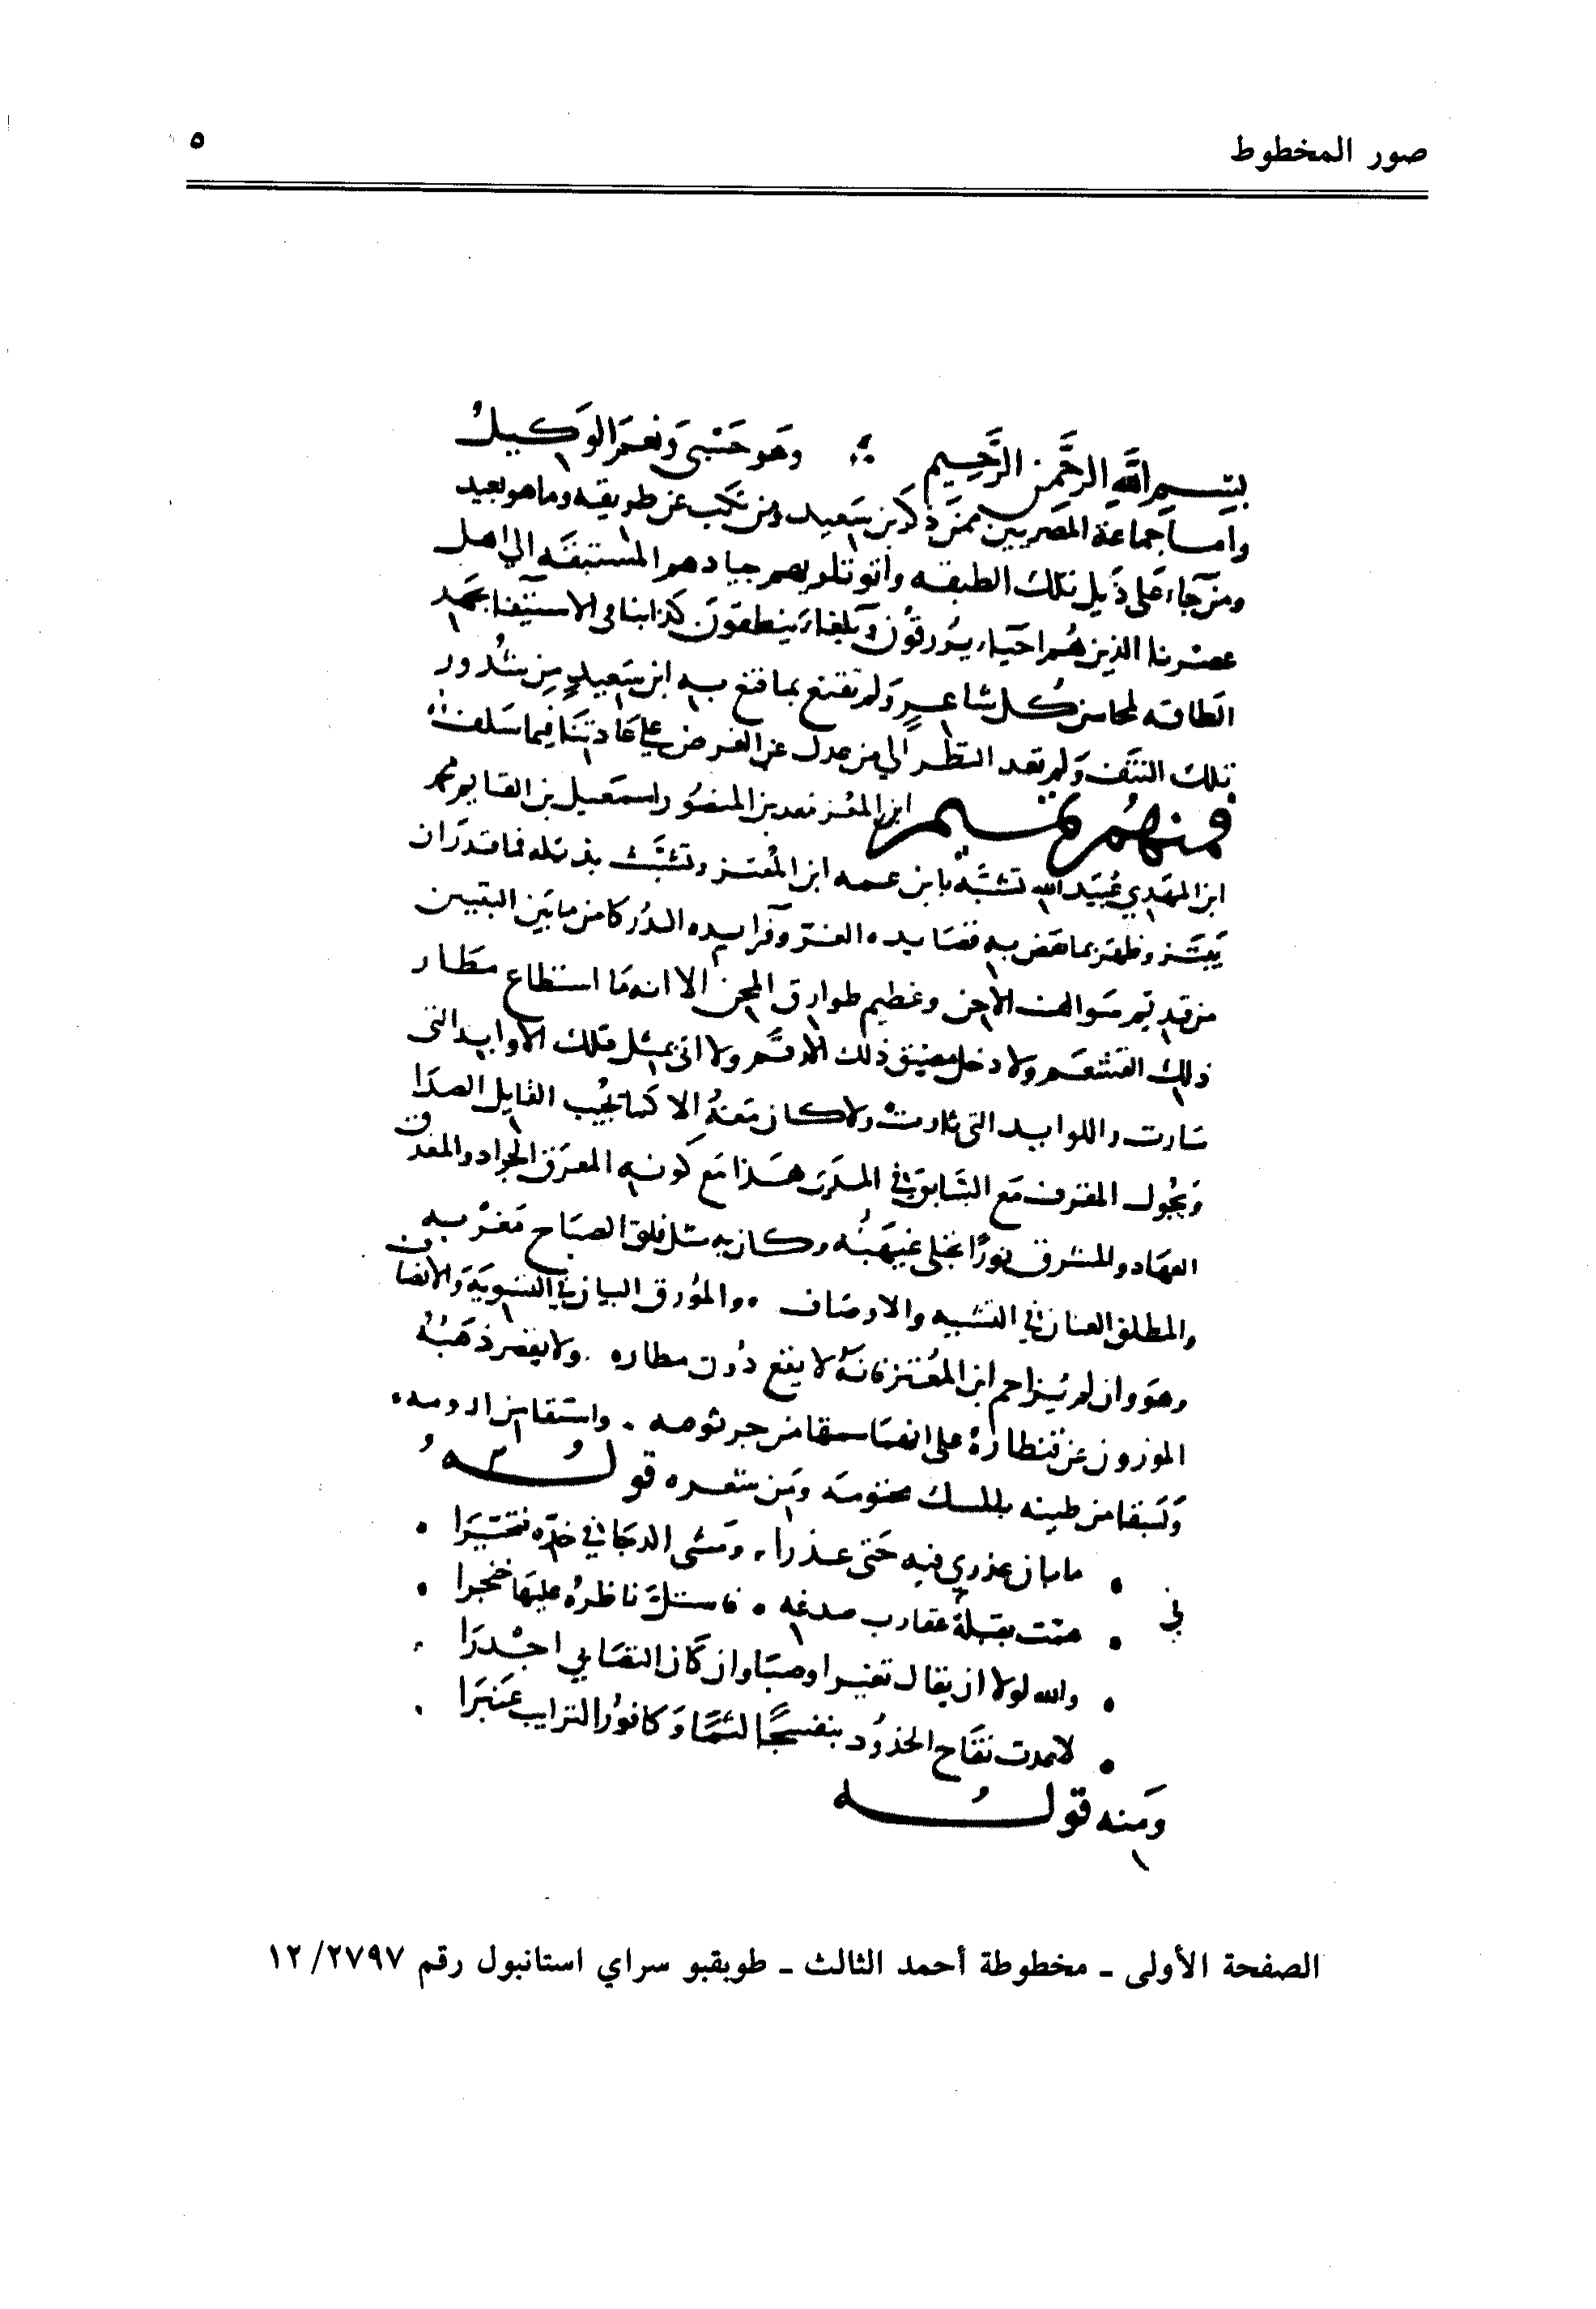 صور المخطوط
٥
بسم الله الرحمن الرحيم وهو حسبي ونعم الوكيل
واما جماعة المصريين ممن ذكر ابن سعيد ومن نكب عن طريقه وما هو ببعيد
ومن جاء على ذيل تلك الطبقه واتوا تلوهم جيادهم المستبقه الى اهل
عصرنا الذين هم احياء يورقون وبلغاء ينطقون كدابنا في الاستيفا بجهد
الطاقه لمحاسن كل شاعر ولم نقنع بما قنع به ابن سعيد من شذور
تلك النتف ولم نعد النظر الى من عدل عن الغرض على عادتنا فيما سلف
فمنهم تميم ابن المعز معد بن المنصور اسمعيل بن القايم محمد
ابن المهدي عبيد الله تشبه بابن عمه ابن المعتز وتشبث بذيله فما قدر ان
يبتز وظفر بما تغص به قصايده الغر وفرايده الدر كامن ما بين البتين
من قديم سوالف الاحن وعظيم طوارق المحن الا انه ما استطاع مطار
ذلك القشعم ولا دخل مضيق ذلك الارقم ولا اتى بمثل تلك الاوابد التي
سارت واللوابد التي ثارت ولا كان معه الا كما يجيب القايل الصدا
ويجول المقرف مع السابق في المدى هذا مع كونه المعرق الجواد والمغدق
العهاد والمشرق نورا تجلى غيهبه وكان به مثل فلق الصباح مغربه
والمطلق العنان في التشبيه والاوصاف والمورق البيان في التسوية والانصاف
وهو وان لم يزاحم ابن المعتز فانه لا يقع دون مطاره ولا يقصر ذهبه
الموزون عن قنطاره على انهما سمقا من جرثومه واستقا من ارومه
وسبقا من طينه بالمسك مختومه ومن شعره قوله
ما بان عذري فيه حتى عذرا ومشى الدجا في خده فتحيرا
همت بقبلة عقارب صدغه فاستل ناظره عليها خنجرا
والله لولا ان يقال تغيرا وصبا وان كان التصابي اجدرا
لاعدت تفاح الخدود بنفسجا لثما وكافور الترايب عنبرا
ومنه قوله
الصفحة الأولى ـ مخطوطة أحمد الثالث ـ طوبقبو سراي استانبول رقم ٢٧٩٧/ ١٢